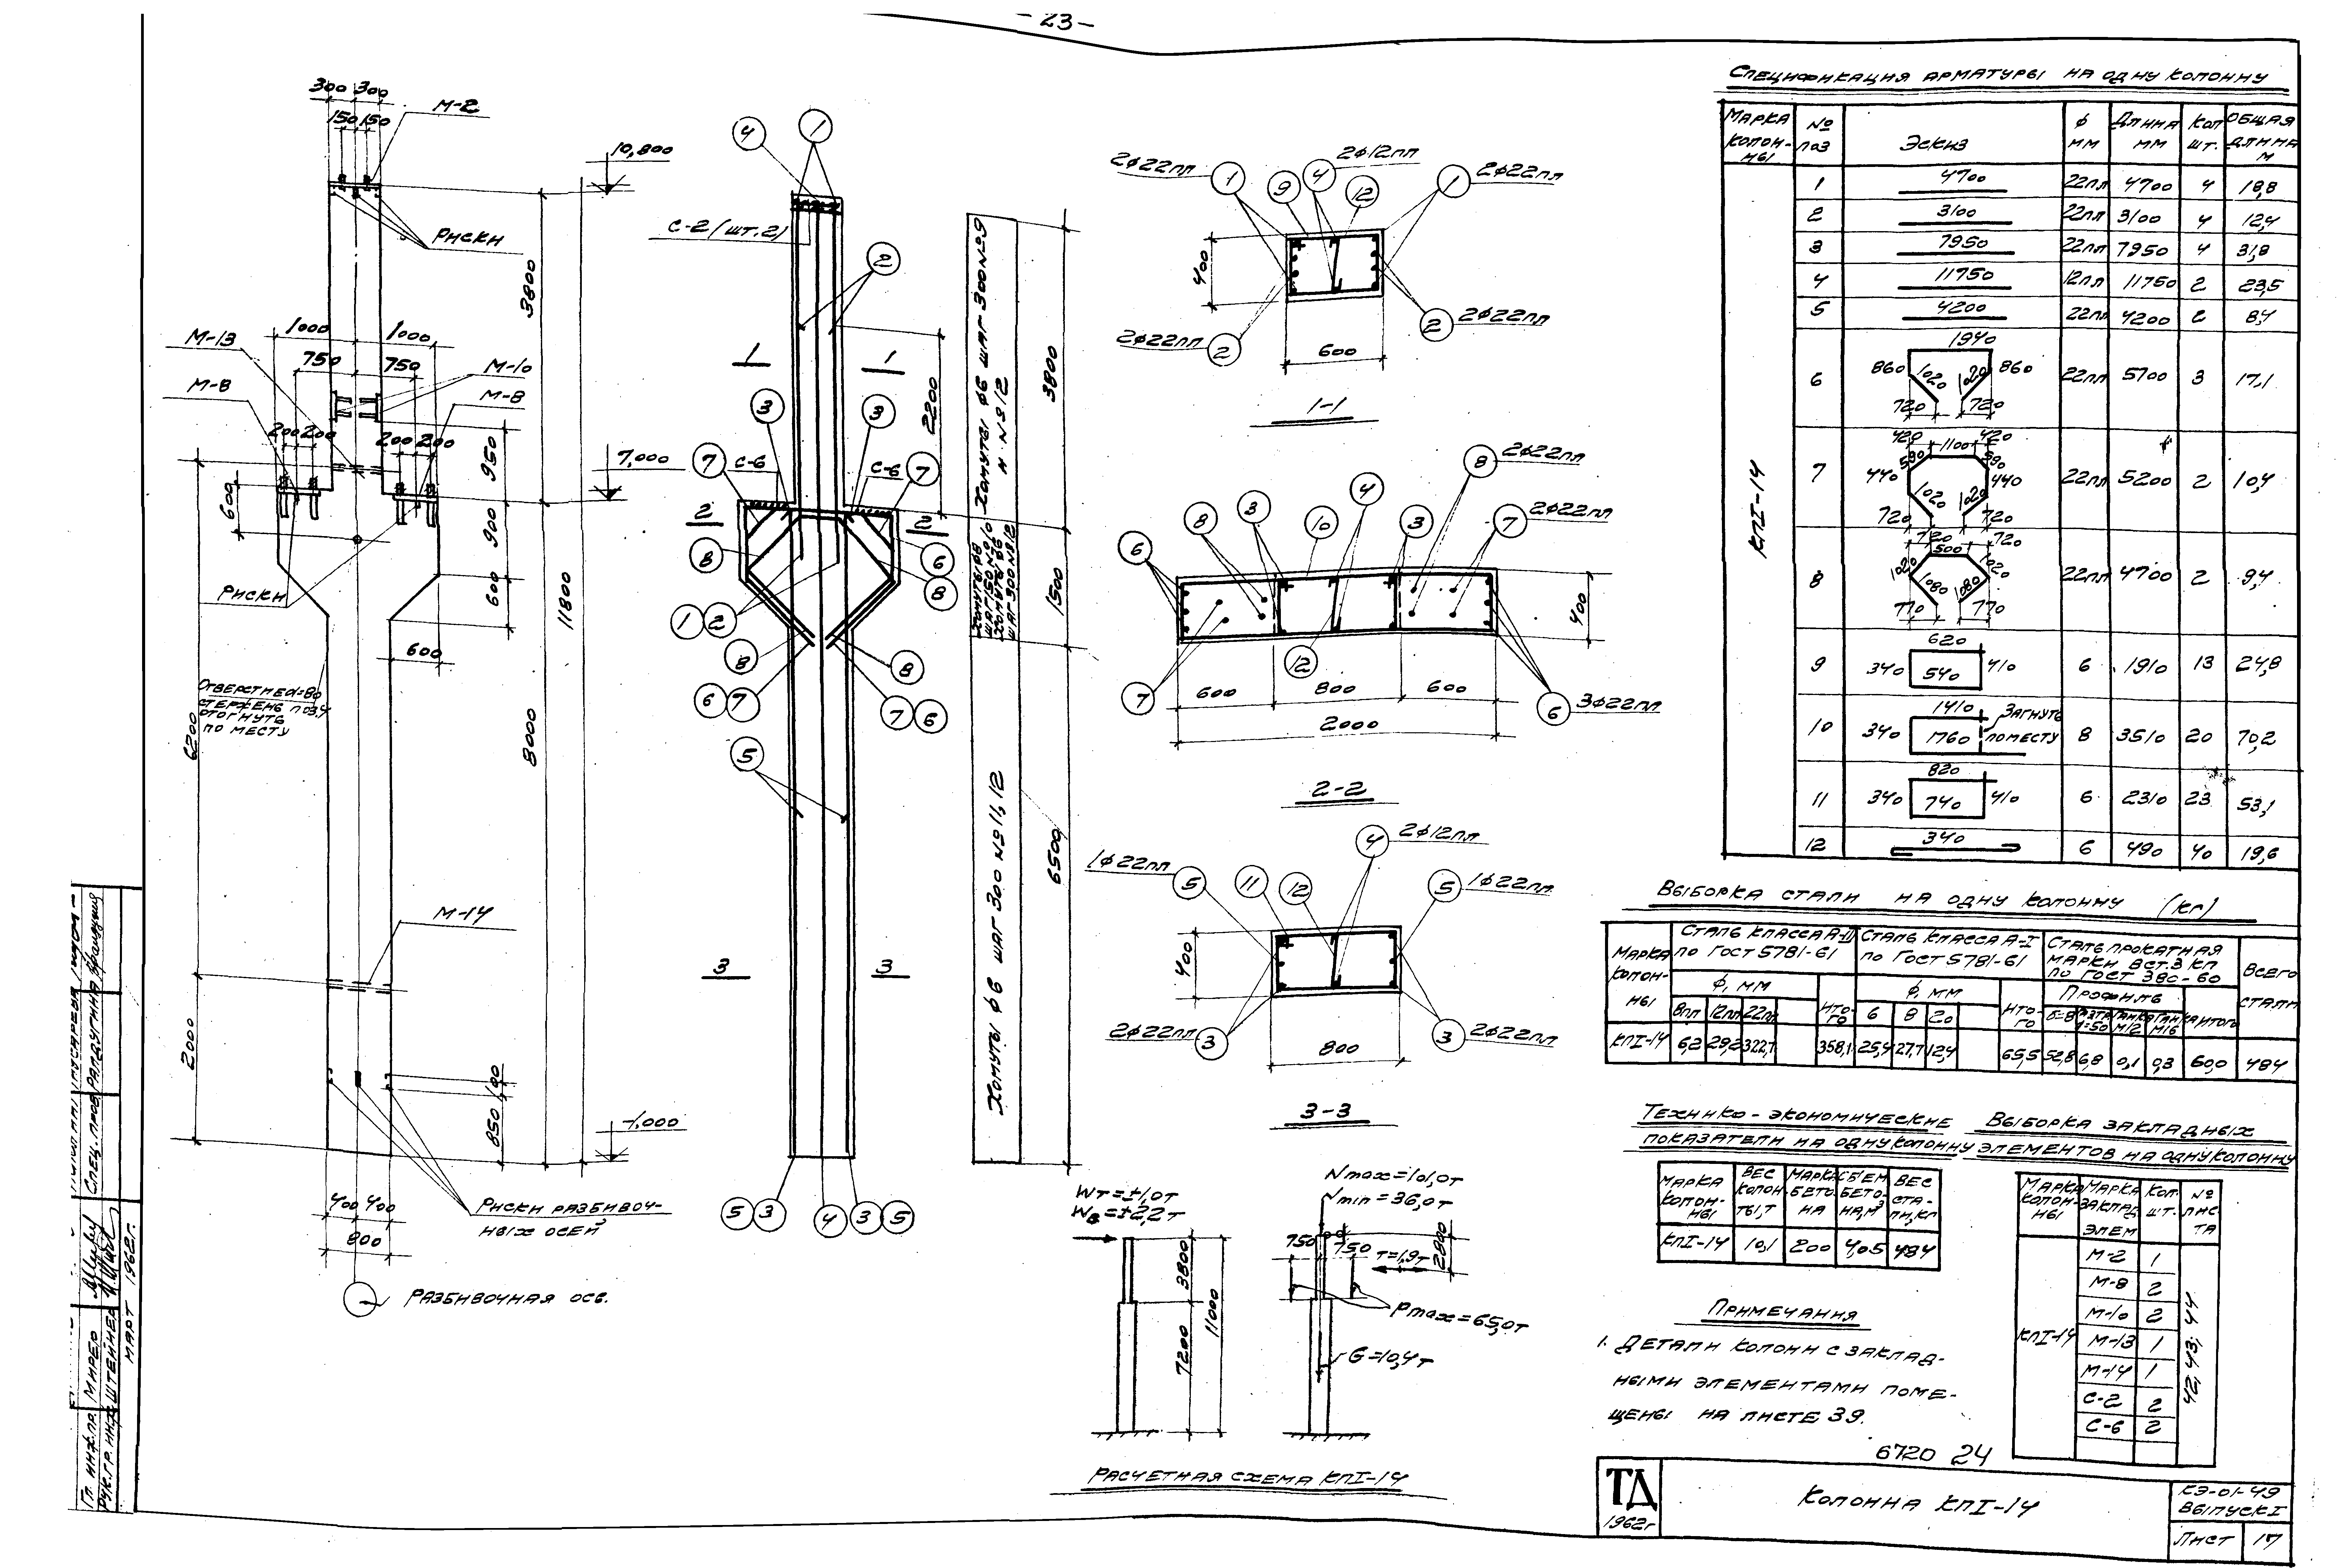 - 23 -
300 300
150 150
М-2
10,800
Риски
3800
1000 1000
М-13
750 750
М-10
М-8
М-8
200 200
200 200
950
7,000
600
900
600
Риски
11800
600
Отверстие d=80
стержень поз.4
отогнуть
по месту
6200
8000
М-14
2000
100
850
-1,000
400 400
800
Риски разбивоч-
ных осей
Разбивочная ось.
4 1
С-2 (шт. 2)
2
1 1
2200
3 3
7 С-6 С-6 7
2 2
8 6
8
1 2
8 8
6 7 7 6
5
3 3
5 3 4 3 5
Хомуты ф6 шаг 300 №9
и №12
3800
Хомуты ф8
шаг 150 №10
Хомуты ф6
шаг 300 №12
1500
Хомуты ф6 шаг 300 №11, 12
6500
2ф22пл 1 9 4 2ф12пл 12 1 2ф22пл
400
2ф22пл 2 2 2ф22пл
600
1-1
8 2ф22пл
6 8 3 10 4 3 7 2ф22пл
400
7 12 6 3ф22пл
600 800 600
2000
2-2
4 2ф12пл
1ф22пл 5 11 12 5 1ф22пл
400
2ф22пл 3 3 2ф22пл
800
3-3
Wт=±1,0т
Wв=±2,2т
3800
7200
11000
Nmax=101,0т
Nmin=36,0т
750 750
Т=1,9т
2800
Pmax=65,0т
G=10,4т
Расчетная схема КПI-14
Спецификация арматуры на одну колонну
Марка колон-ны № поз Эскиз ф мм Длина мм Кол шт. Общая длина м
КПI-14
1 4700 22пл 4700 4 18,8
2 3100 22пл 3100 4 12,4
3 7950 22пл 7950 4 31,8
4 11750 12пл 11750 2 23,5
5 4200 22пл 4200 2 8,4
6 1940 860 1020 1020 860 720 720 22пл 5700 3 17,1
7 420 1100 420 590 590 440 440 1020 1020 720 720 22пл 5200 2 10,4
8 720 500 720 1020 1020 1080 1080 770 770 22пл 4700 2 9,4
9 620 340 540 410 6 1910 13 24,8
10 1410 340 1760 Загнуть по месту 8 3510 20 70,2
11 820 340 740 410 6 2310 23 53,1
12 340 6 490 40 19,6
Выборка стали на одну колонну (кг)
Марка колон-ны
Сталь класса А-III по ГОСТ 5781-61
Сталь класса А-I по ГОСТ 5781-61
Сталь прокатная марки Вст.3 кп по ГОСТ 380-60
Всего стали
ф, мм ф, мм Профиль
8пл 12пл 22пл Итого 6 8 20 Итого δ=8 М12 М16 Итого
КПI-14 6,2 29,2 322,7 358,1 25,4 27,7 12,4 65,5 52,8 6,8 0,1 0,3 60,0 484
Технико-экономические
показатели на одну колонну
Марка колон-ны Вес колонны, т Марка бетона Объем бето-на, м³ Вес ста-ли, кг
КПI-14 10,1 200 4,05 484
Выборка закладных
элементов на одну колонну
Марка колон-ны Марка заклад элем Кол. шт. № лис та
КПI-14
М-2 1
М-8 2
М-10 2
М-13 1
М-14 1
С-2 2
С-6 2
42, 43, 44
Примечания
1. Детали колонн с заклад-
ными элементами поме-
щены на листе 39.
6720 24
ТД
1962г
Колонна КПI-14
КЭ-01-49
Выпуск I
Лист 17
Гл. инж.пр. Мирер
Рук.гр.инж. Штейнер
Март 1962г.
Спец. пров.